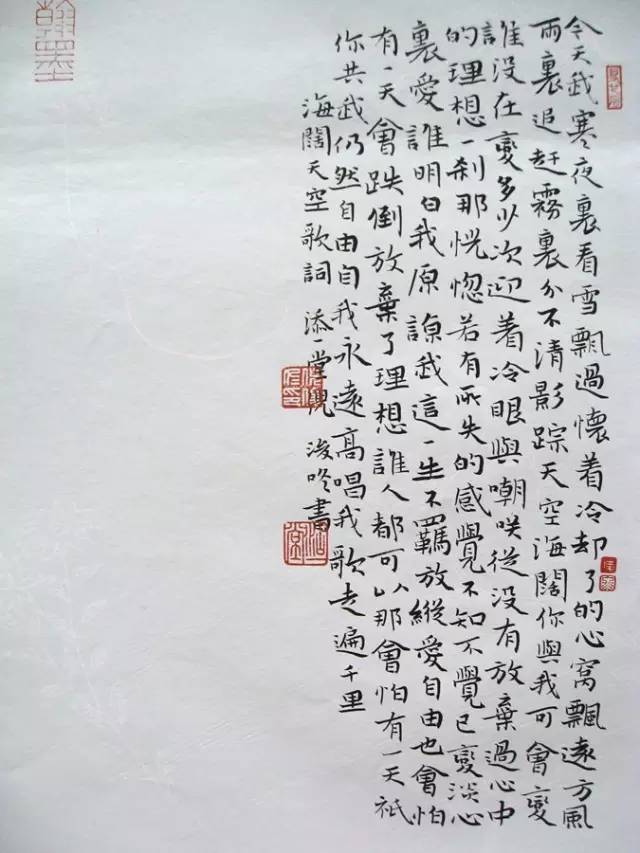 今天我寒夜裏看雪飄過懷着冷却了的心窩飄遠方風
雨裏追赶霧裏分不清影踪天空海闊你與我可會變
誰沒在變多少次迎着冷眼與嘲咲從沒有放棄過心中
的理想一刹那恍惚若有所失的感覺不知不覺已變淡心
裏愛誰明白我原諒我這一生不羈放縱愛自由也會怕
有一天會跌倒放棄了理想誰人都可以那會怕有一天祇
你共我仍然自由自我永遠高唱我歌走遍千里
海闊天空歌詞 添一堂 浚咚書
翰墨